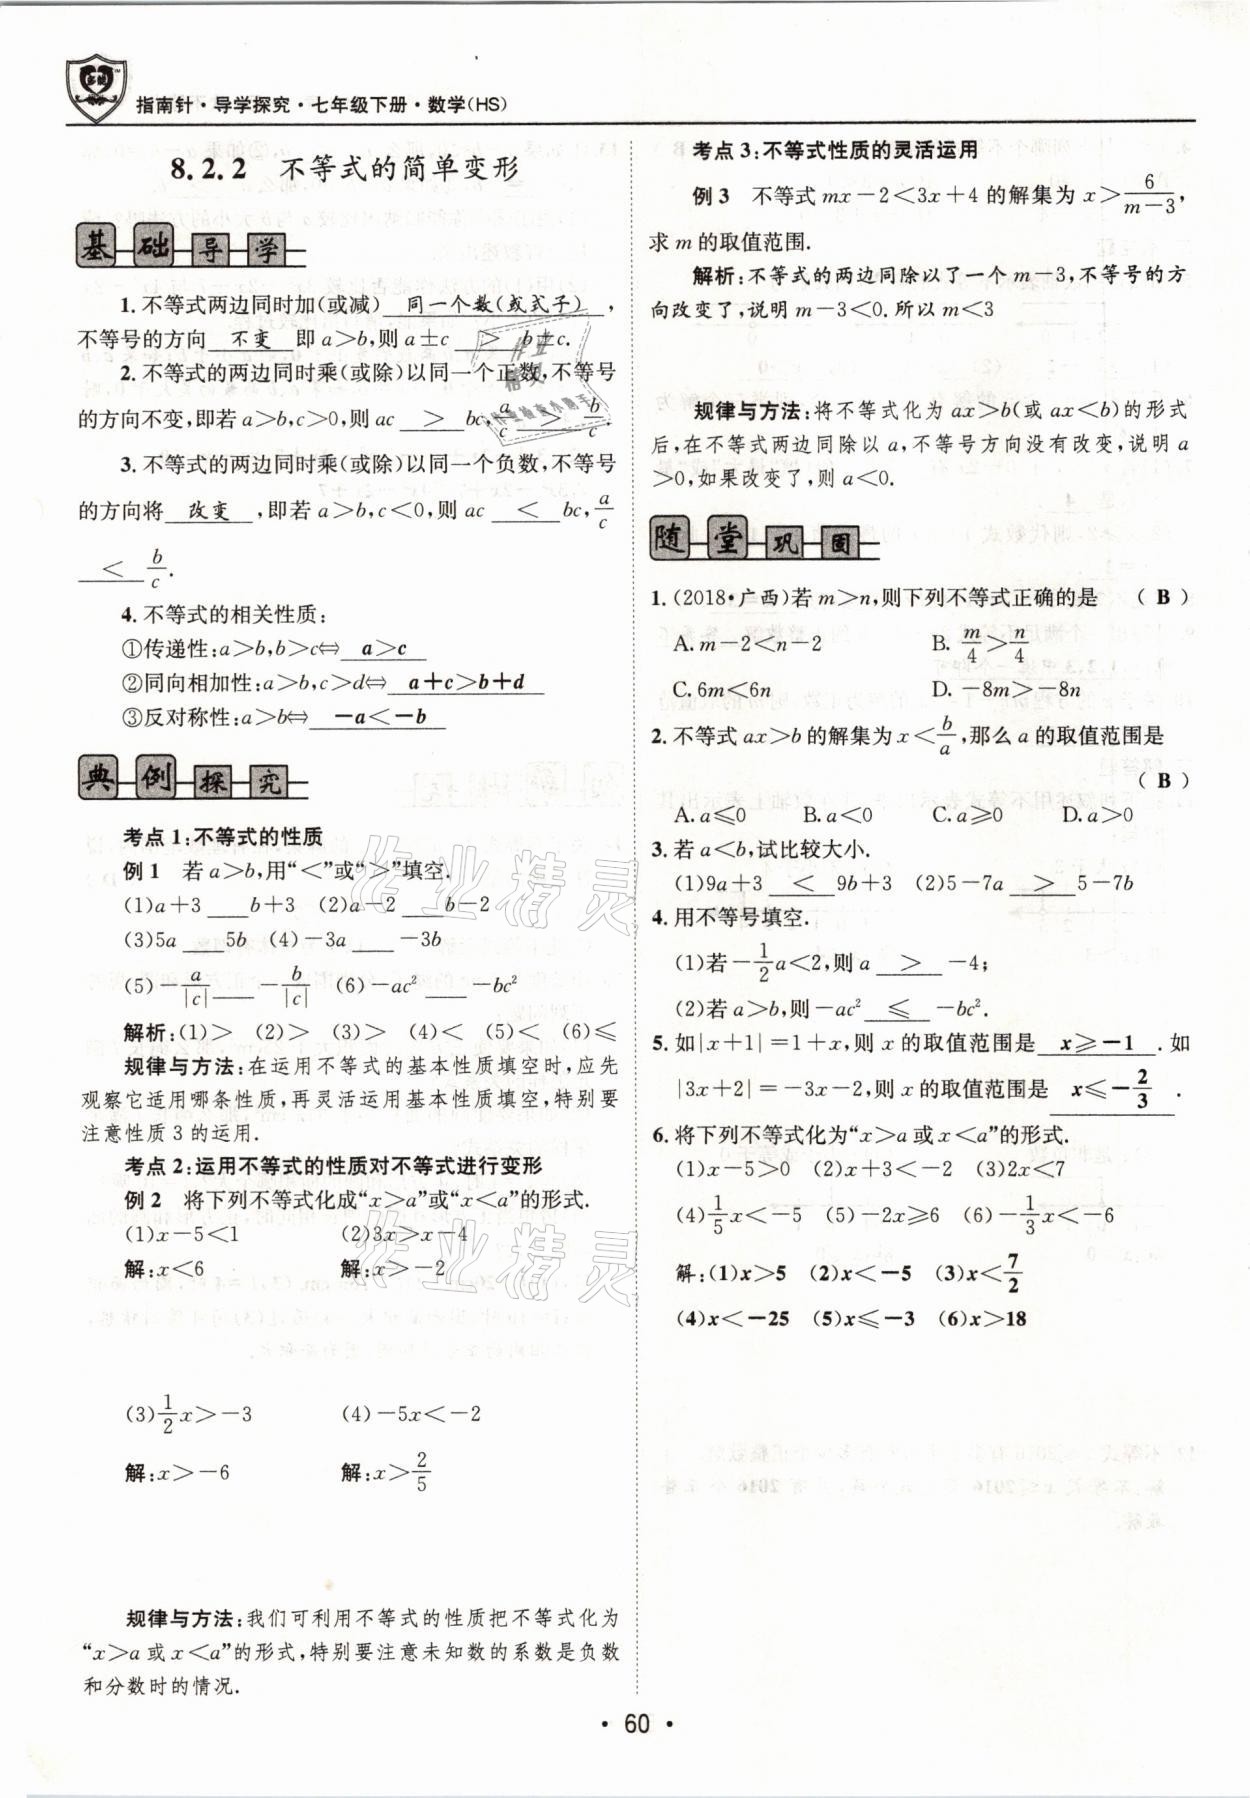 指南针·导学探究·七年级下册·数学(HS)
8.2.2 不等式的简单变形
基础导学
1.不等式两边同时加(或减) 同一个数(或式子) ,
不等号的方向 不变 即a>b,则a±c > b±c.
2.不等式的两边同时乘(或除)以同一个正数,不等号
的方向不变,即若a>b,c>0,则ac > bc, a/c > b/c.
3.不等式的两边同时乘(或除)以同一个负数,不等号
的方向将 改变 ,即若a>b,c<0,则ac < bc, a/c
< b/c.
4.不等式的相关性质:
①传递性:a>b,b>c⇔ a>c
②同向相加性:a>b,c>d⇔ a+c>b+d
③反对称性:a>b⇔ -a<-b
典例探究
考点1:不等式的性质
例1 若a>b,用“<”或“>”填空.
(1)a+3 ___ b+3 (2)a-2 ___ b-2
(3)5a ___ 5b (4)-3a ___ -3b
(5)-a/|c| ___ -b/|c| (6)-ac² ___ -bc²
解析:(1)> (2)> (3)> (4)< (5)< (6)≤
规律与方法:在运用不等式的基本性质填空时,应先
观察它适用哪条性质,再灵活运用基本性质填空,特别要
注意性质3的运用.
考点2:运用不等式的性质对不等式进行变形
例2 将下列不等式化成“x>a”或“x<a”的形式.
(1)x-5<1 (2)3x>x-4
解:x<6 解:x>-2
(3)1/2x>-3 (4)-5x<-2
解:x>-6 解:x>2/5
规律与方法:我们可利用不等式的性质把不等式化为
“x>a或x<a”的形式,特别要注意未知数的系数是负数
和分数时的情况.
考点3:不等式性质的灵活运用
例3 不等式mx-2<3x+4的解集为x>6/(m-3),
求m的取值范围.
解析:不等式的两边同除以了一个m-3,不等号的方
向改变了,说明m-3<0.所以m<3
规律与方法:将不等式化为ax>b(或ax<b)的形式
后,在不等式两边同除以a,不等号方向没有改变,说明a
>0,如果改变了,则a<0.
随堂巩固
1.(2018·广西)若m>n,则下列不等式正确的是 ( B )
A.m-2<n-2 B.m/4>n/4
C.6m<6n D.-8m>-8n
2.不等式ax>b的解集为x<b/a,那么a的取值范围是
( B )
A.a≤0 B.a<0 C.a≥0 D.a>0
3.若a<b,试比较大小.
(1)9a+3 < 9b+3 (2)5-7a > 5-7b
4.用不等号填空.
(1)若-1/2a<2,则a > -4;
(2)若a>b,则-ac² ≤ -bc².
5.如|x+1|=1+x,则x的取值范围是 x≥-1 .如
|3x+2|=-3x-2,则x的取值范围是 x≤-2/3 .
6.将下列不等式化为“x>a或x<a”的形式.
(1)x-5>0 (2)x+3<-2 (3)2x<7
(4)1/5x<-5 (5)-2x≥6 (6)-1/3x<-6
解:(1)x>5 (2)x<-5 (3)x<7/2
(4)x<-25 (5)x≤-3 (6)x>18
作业精灵
作业精灵
·60·